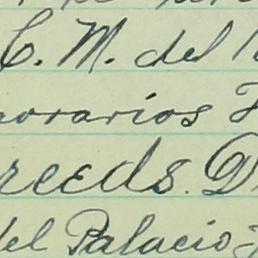 C. M. del
orarios
reeds. D
del Palacio